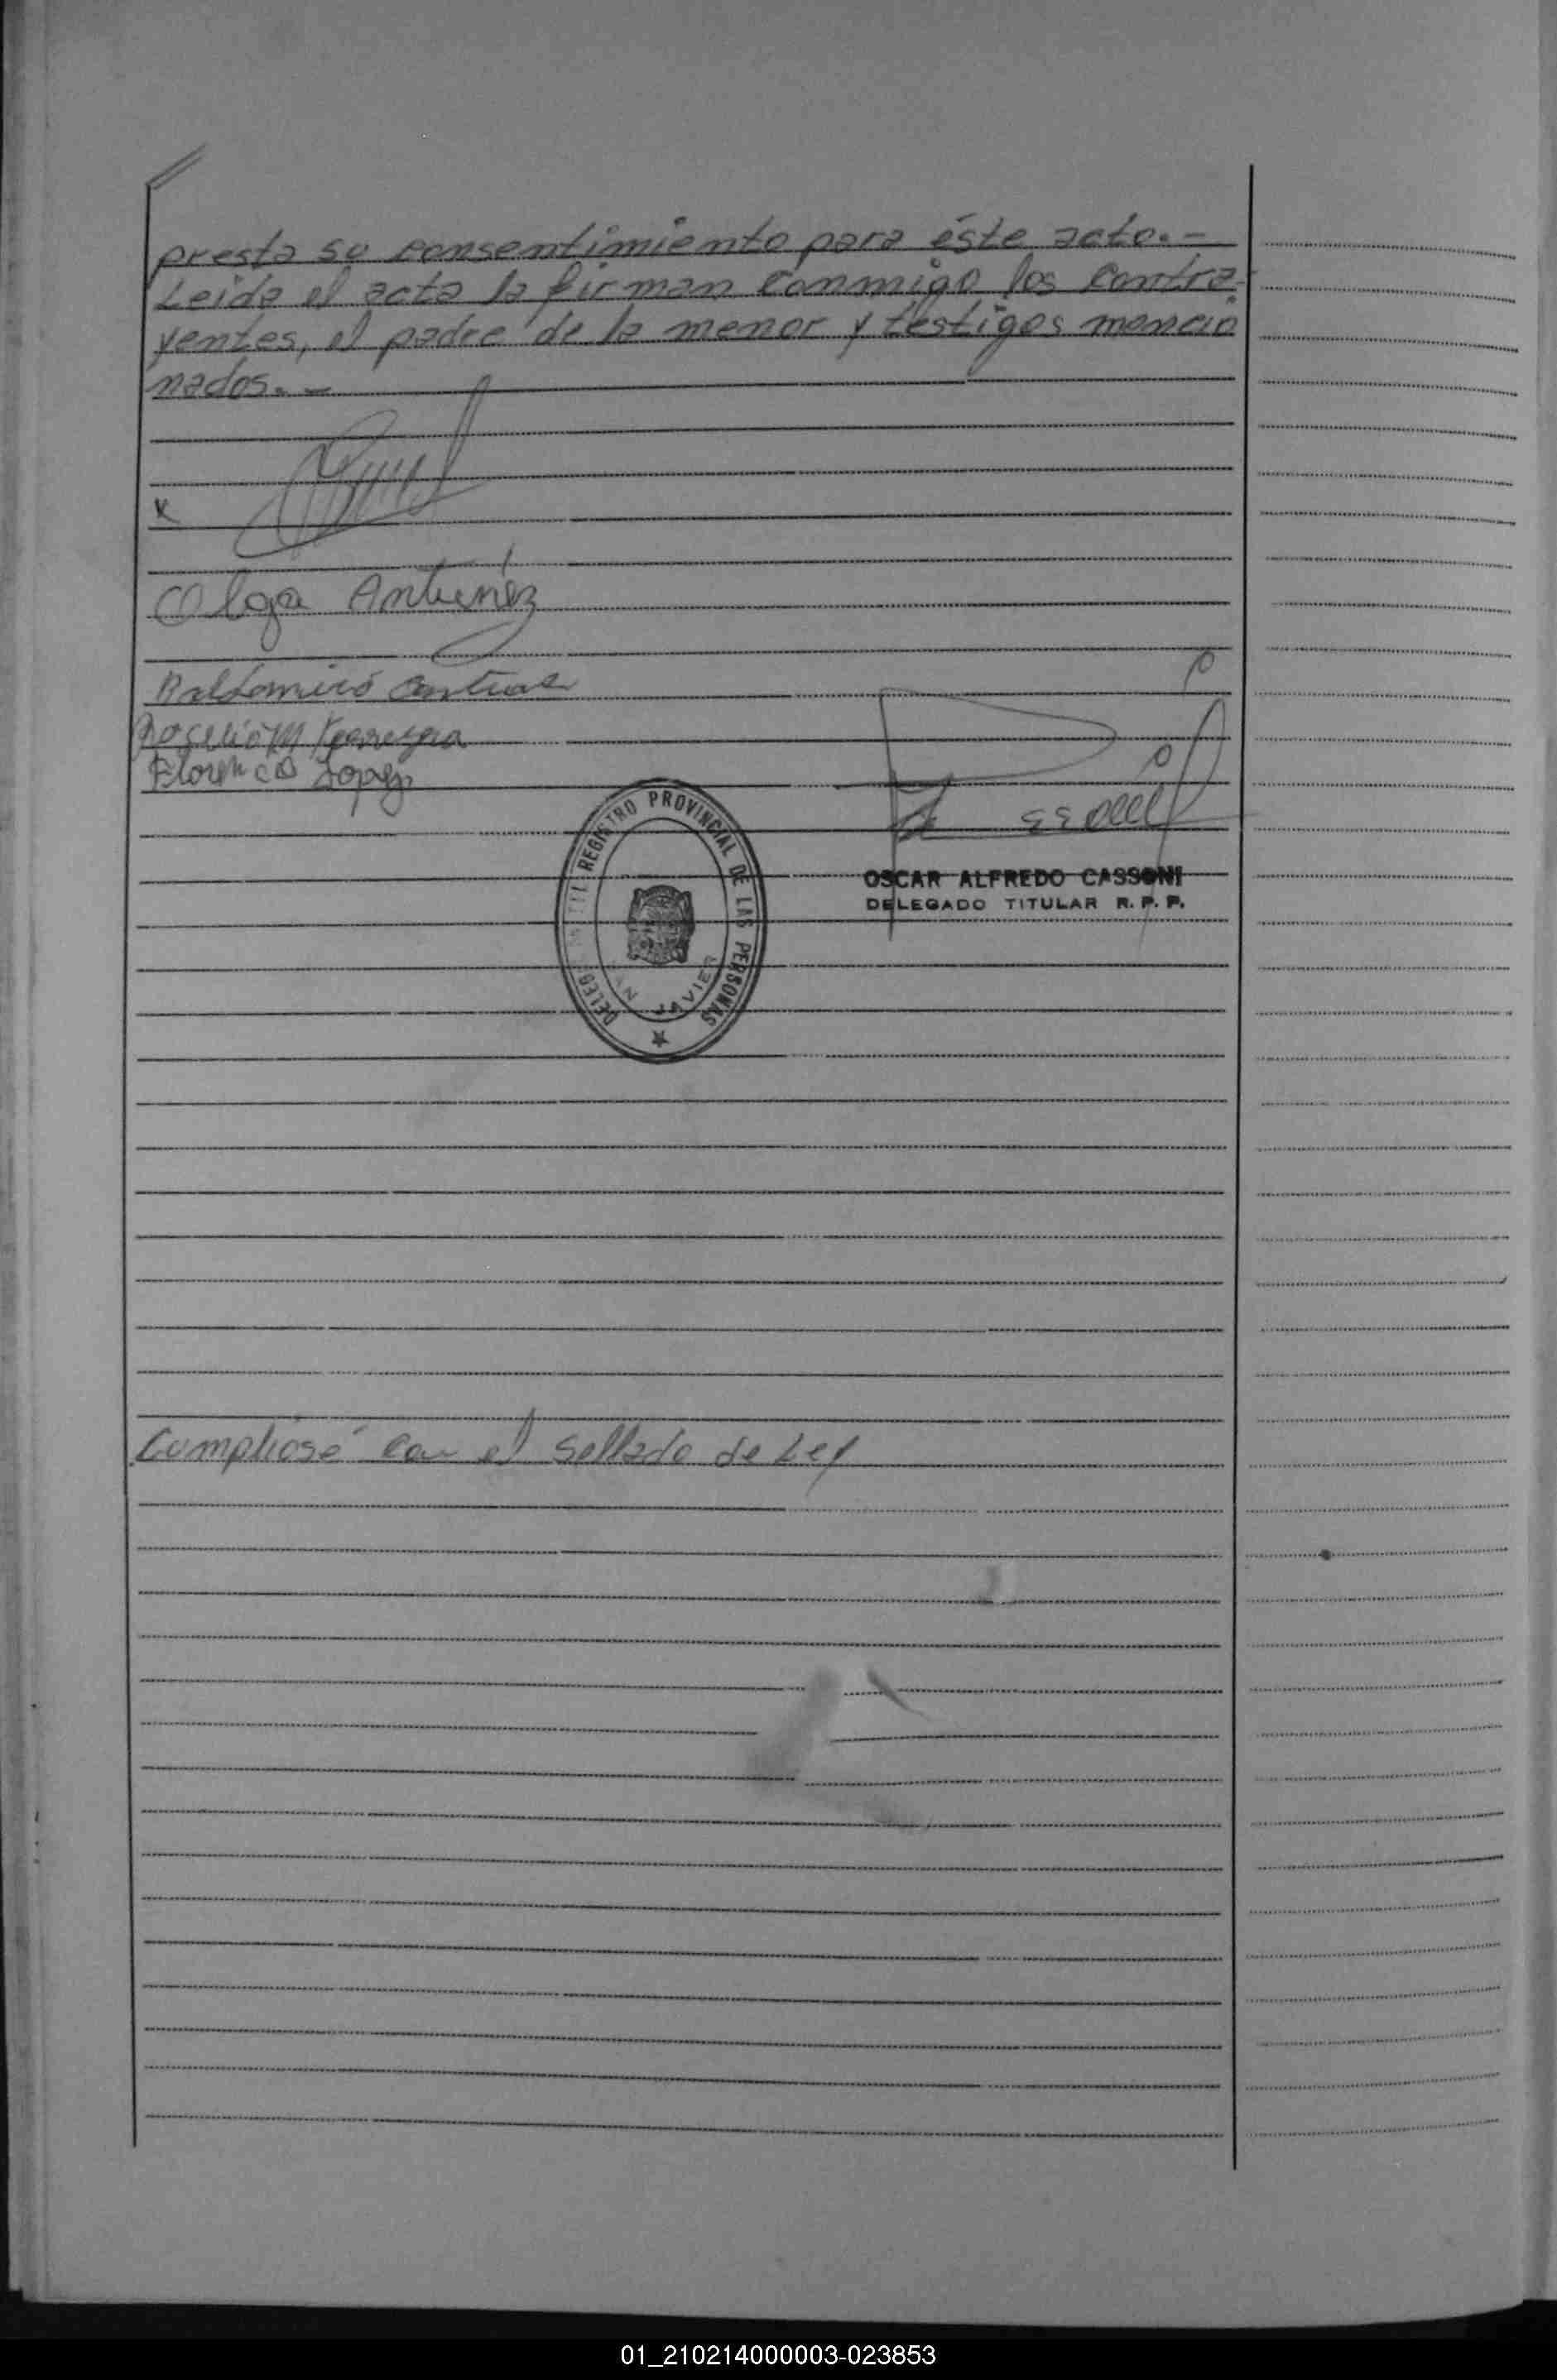 presta su consentimiento para éste acto.-
Leída el acta la firman conmigo los contra-
yentes, el padre de la menor y testigos mencio
nados.-
x
Olga Antunez
Baltomiro
Rogelio M
Florencio Lopez
REGISTRO PROVINCIAL DE LAS PERSONAS
JAVIER
OSCAR ALFREDO CASSONI
DELEGADO TITULAR R. P. P.
Cumpliosé con el Sellado de Ley
01_210214000003-023853